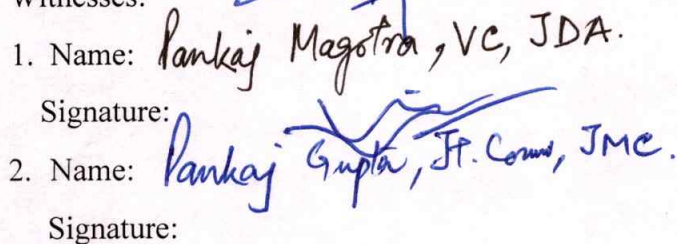 Witnesses:
1. Name: Pankaj Magotra, VC, JDA.
Signature:
2. Name: Pankaj Gupta, Jt. Comm, JMC.
Signature: